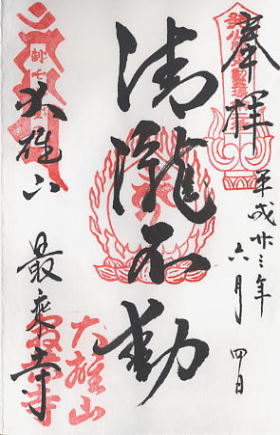 奉拝
平成廿三年
六月四日
清瀧不動
大雄山
最乗寺
大雄山
最乗寺